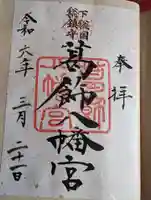 奉拝
下総国
総鎮守
葛飾八幡宮
令和六年三月二十一日